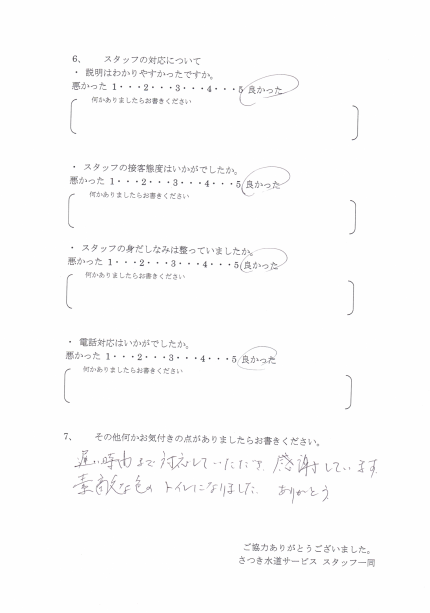 6、　スタッフの対応について
・ 説明はわかりやすかったですか。
悪かった 1・・・2・・・3・・・4・・・5 良かった
何かありましたらお書きください
・ スタッフの接客態度はいかがでしたか。
悪かった 1・・・2・・・3・・・4・・・5 良かった
何かありましたらお書きください
・ スタッフの身だしなみは整っていましたか。
悪かった 1・・・2・・・3・・・4・・・5 良かった
何かありましたらお書きください
・ 電話対応はいかがでしたか。
悪かった 1・・・2・・・3・・・4・・・5 良かった
何かありましたらお書きください
7、　その他何かお気付きの点がありましたらお書きください。
遅い時間まで対応していただき 感謝しています。
素敵な色の トイレになりました。 ありがとう
ご協力ありがとうございました。
さつき水道サービス スタッフ一同